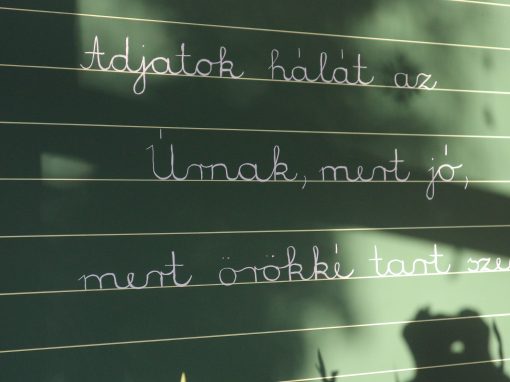 Adjatok hálát az
Úrnak, mert jó,
mert örökké tart sze